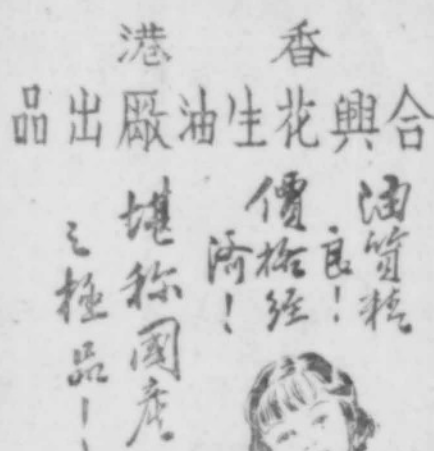 香港
合興花生油廠出品
油質精
良！
價格經
濟！
堪称國産
之極品！